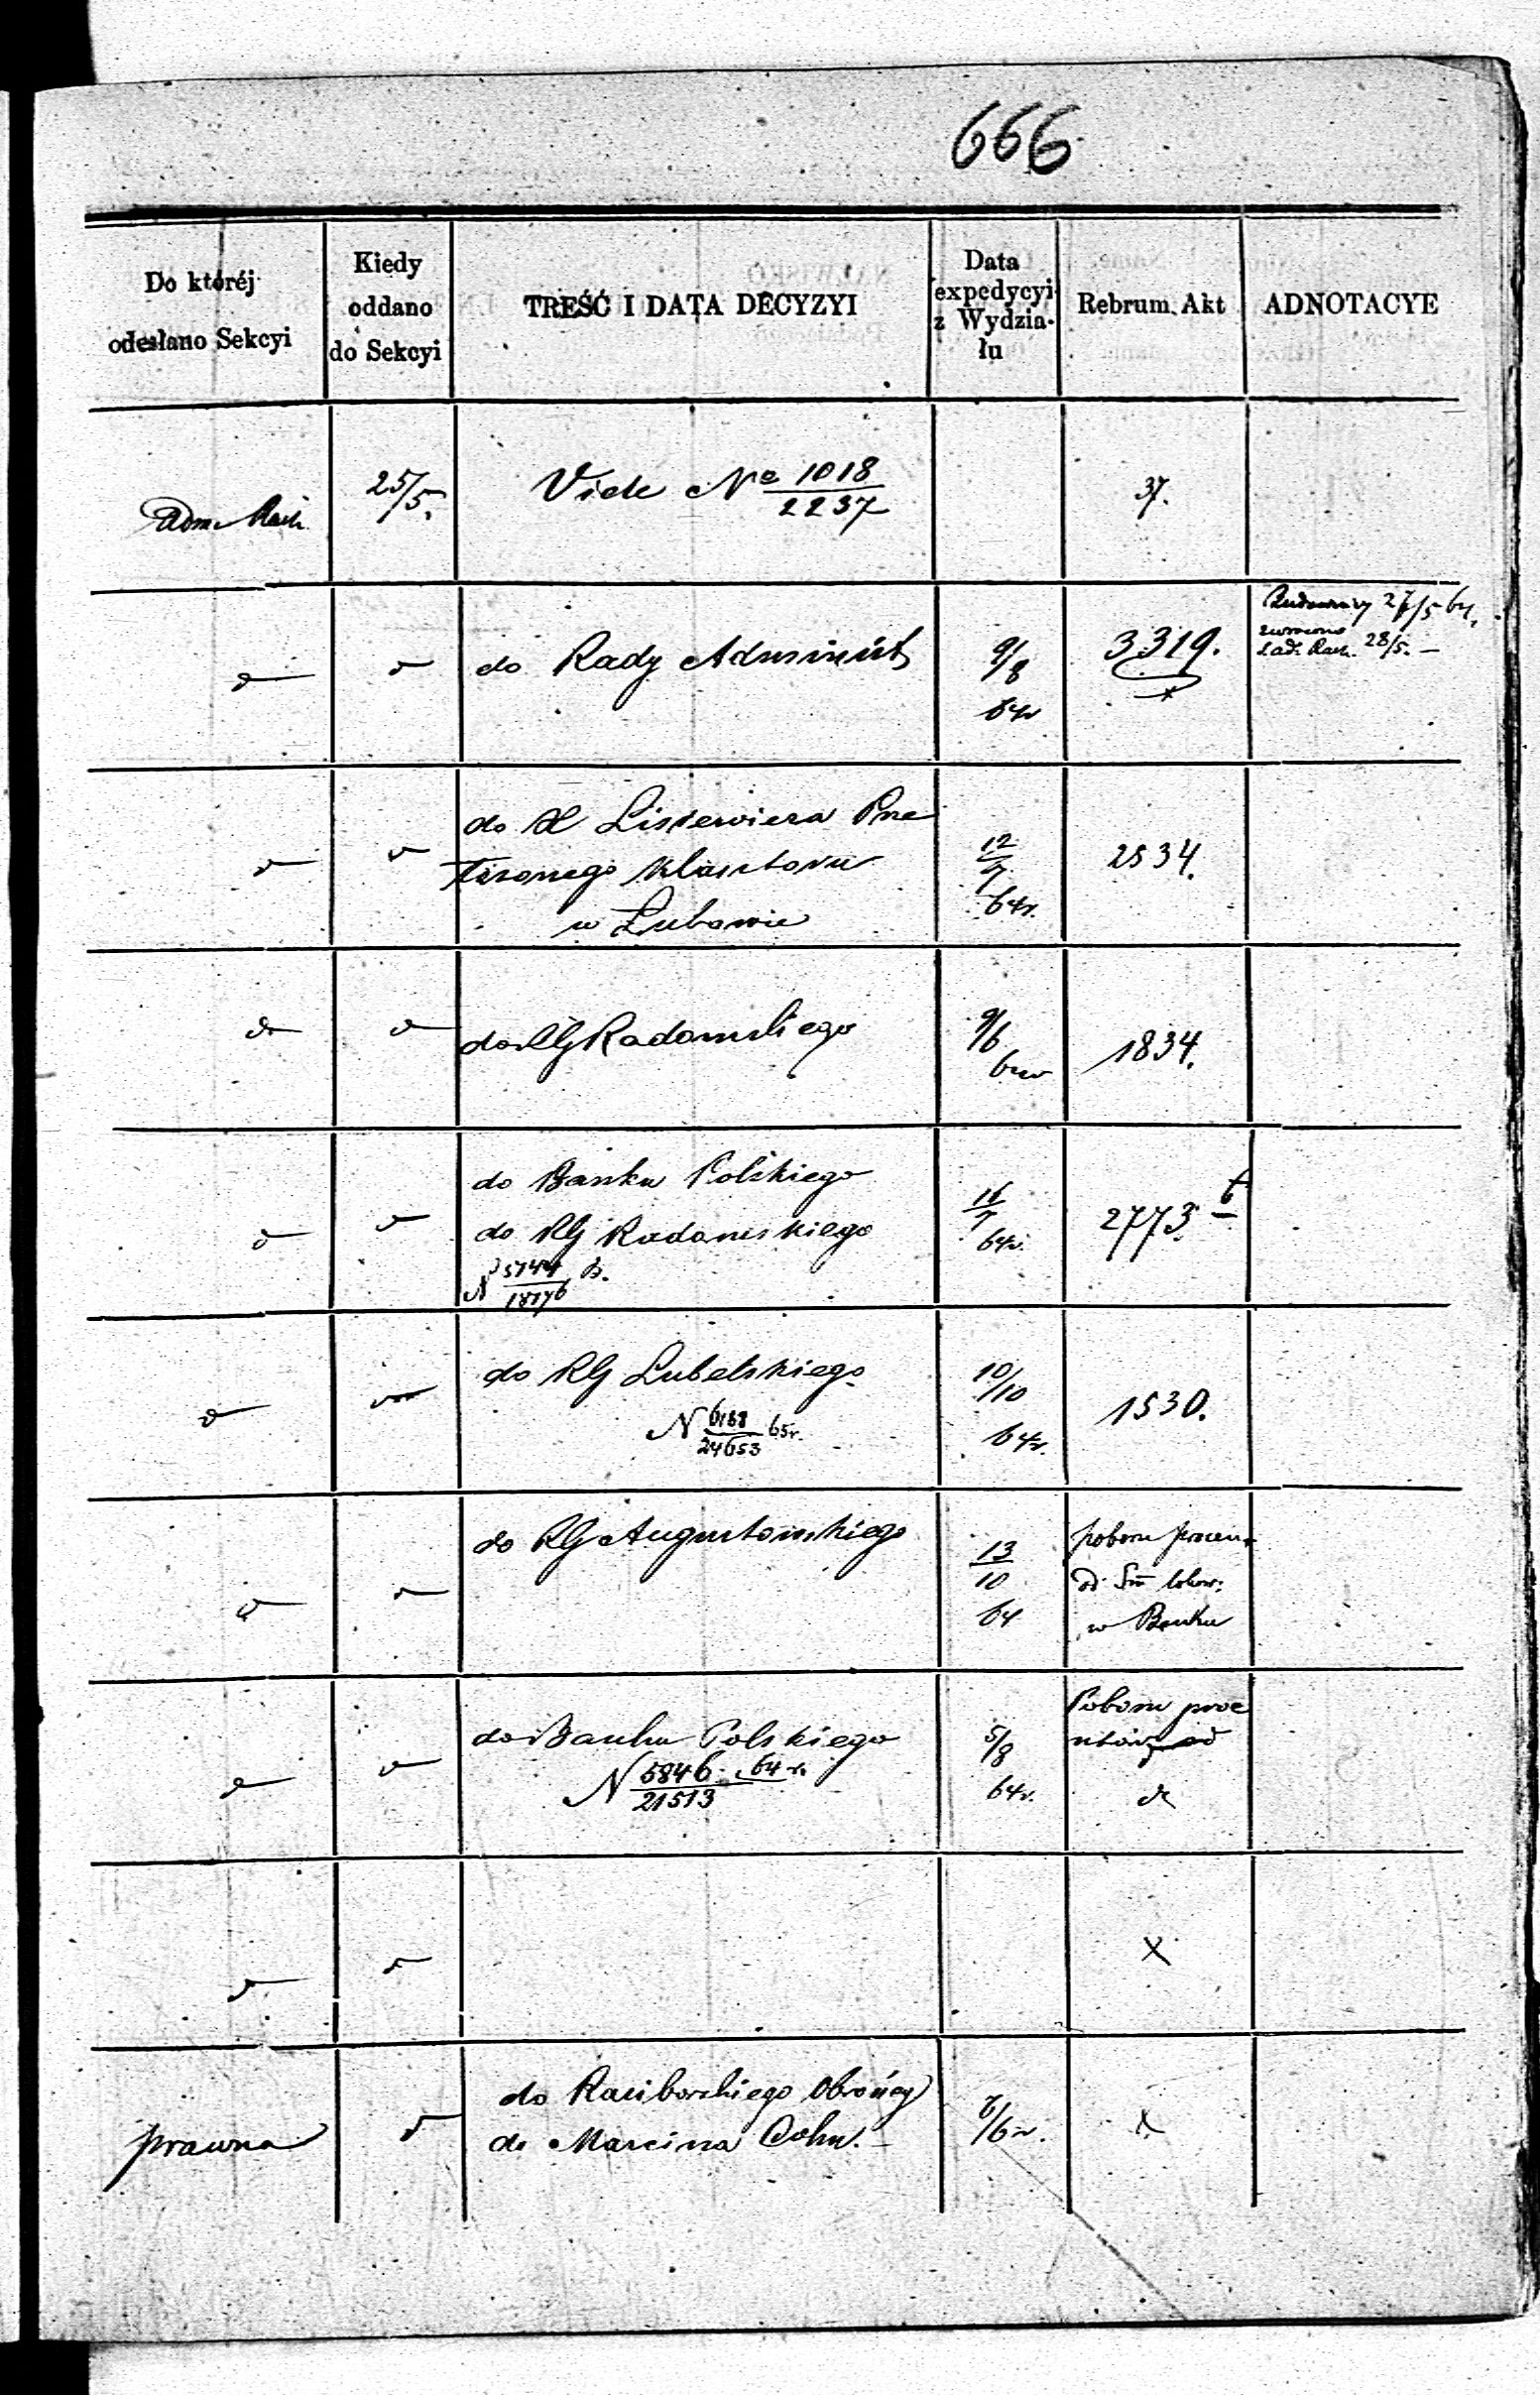 666
Do któréj
odesłano Sekcyi
Kiedy
oddano
do Sekcyi
TREŚĆ I DATA DECYZYI
Data
expedycyi
z Wydzia-
łu
Rebrum Akt
ADNOTACYE
Adm. Rach.
25/5.
Vide No 1018/2237
37.
do Rady Administ
9/8
64r
3319.
27/5 64.
28/5. —
do
Klasztoru
w Lubowie
12/7
64r.
2534.
do RG Radomskiego
9/6
64r
1834.
do Banku Polskiego
do RG Radomskiego
N 5744/18776 B.
16/7
64r.
2773 b
do RG Lubelskiego
N 6188/24653 65r.
10/10
64r.
1530.
do RG Augustowskiego
13/10
64
poboru procen.
od
w Banku
do Banku Polskiego
N 5846/21513 64 r.
5/8
64r.
Poboru proce
ntów od
X
prawna
do Raciborskiego Obrońcy
do Marcina Cohn. —
X